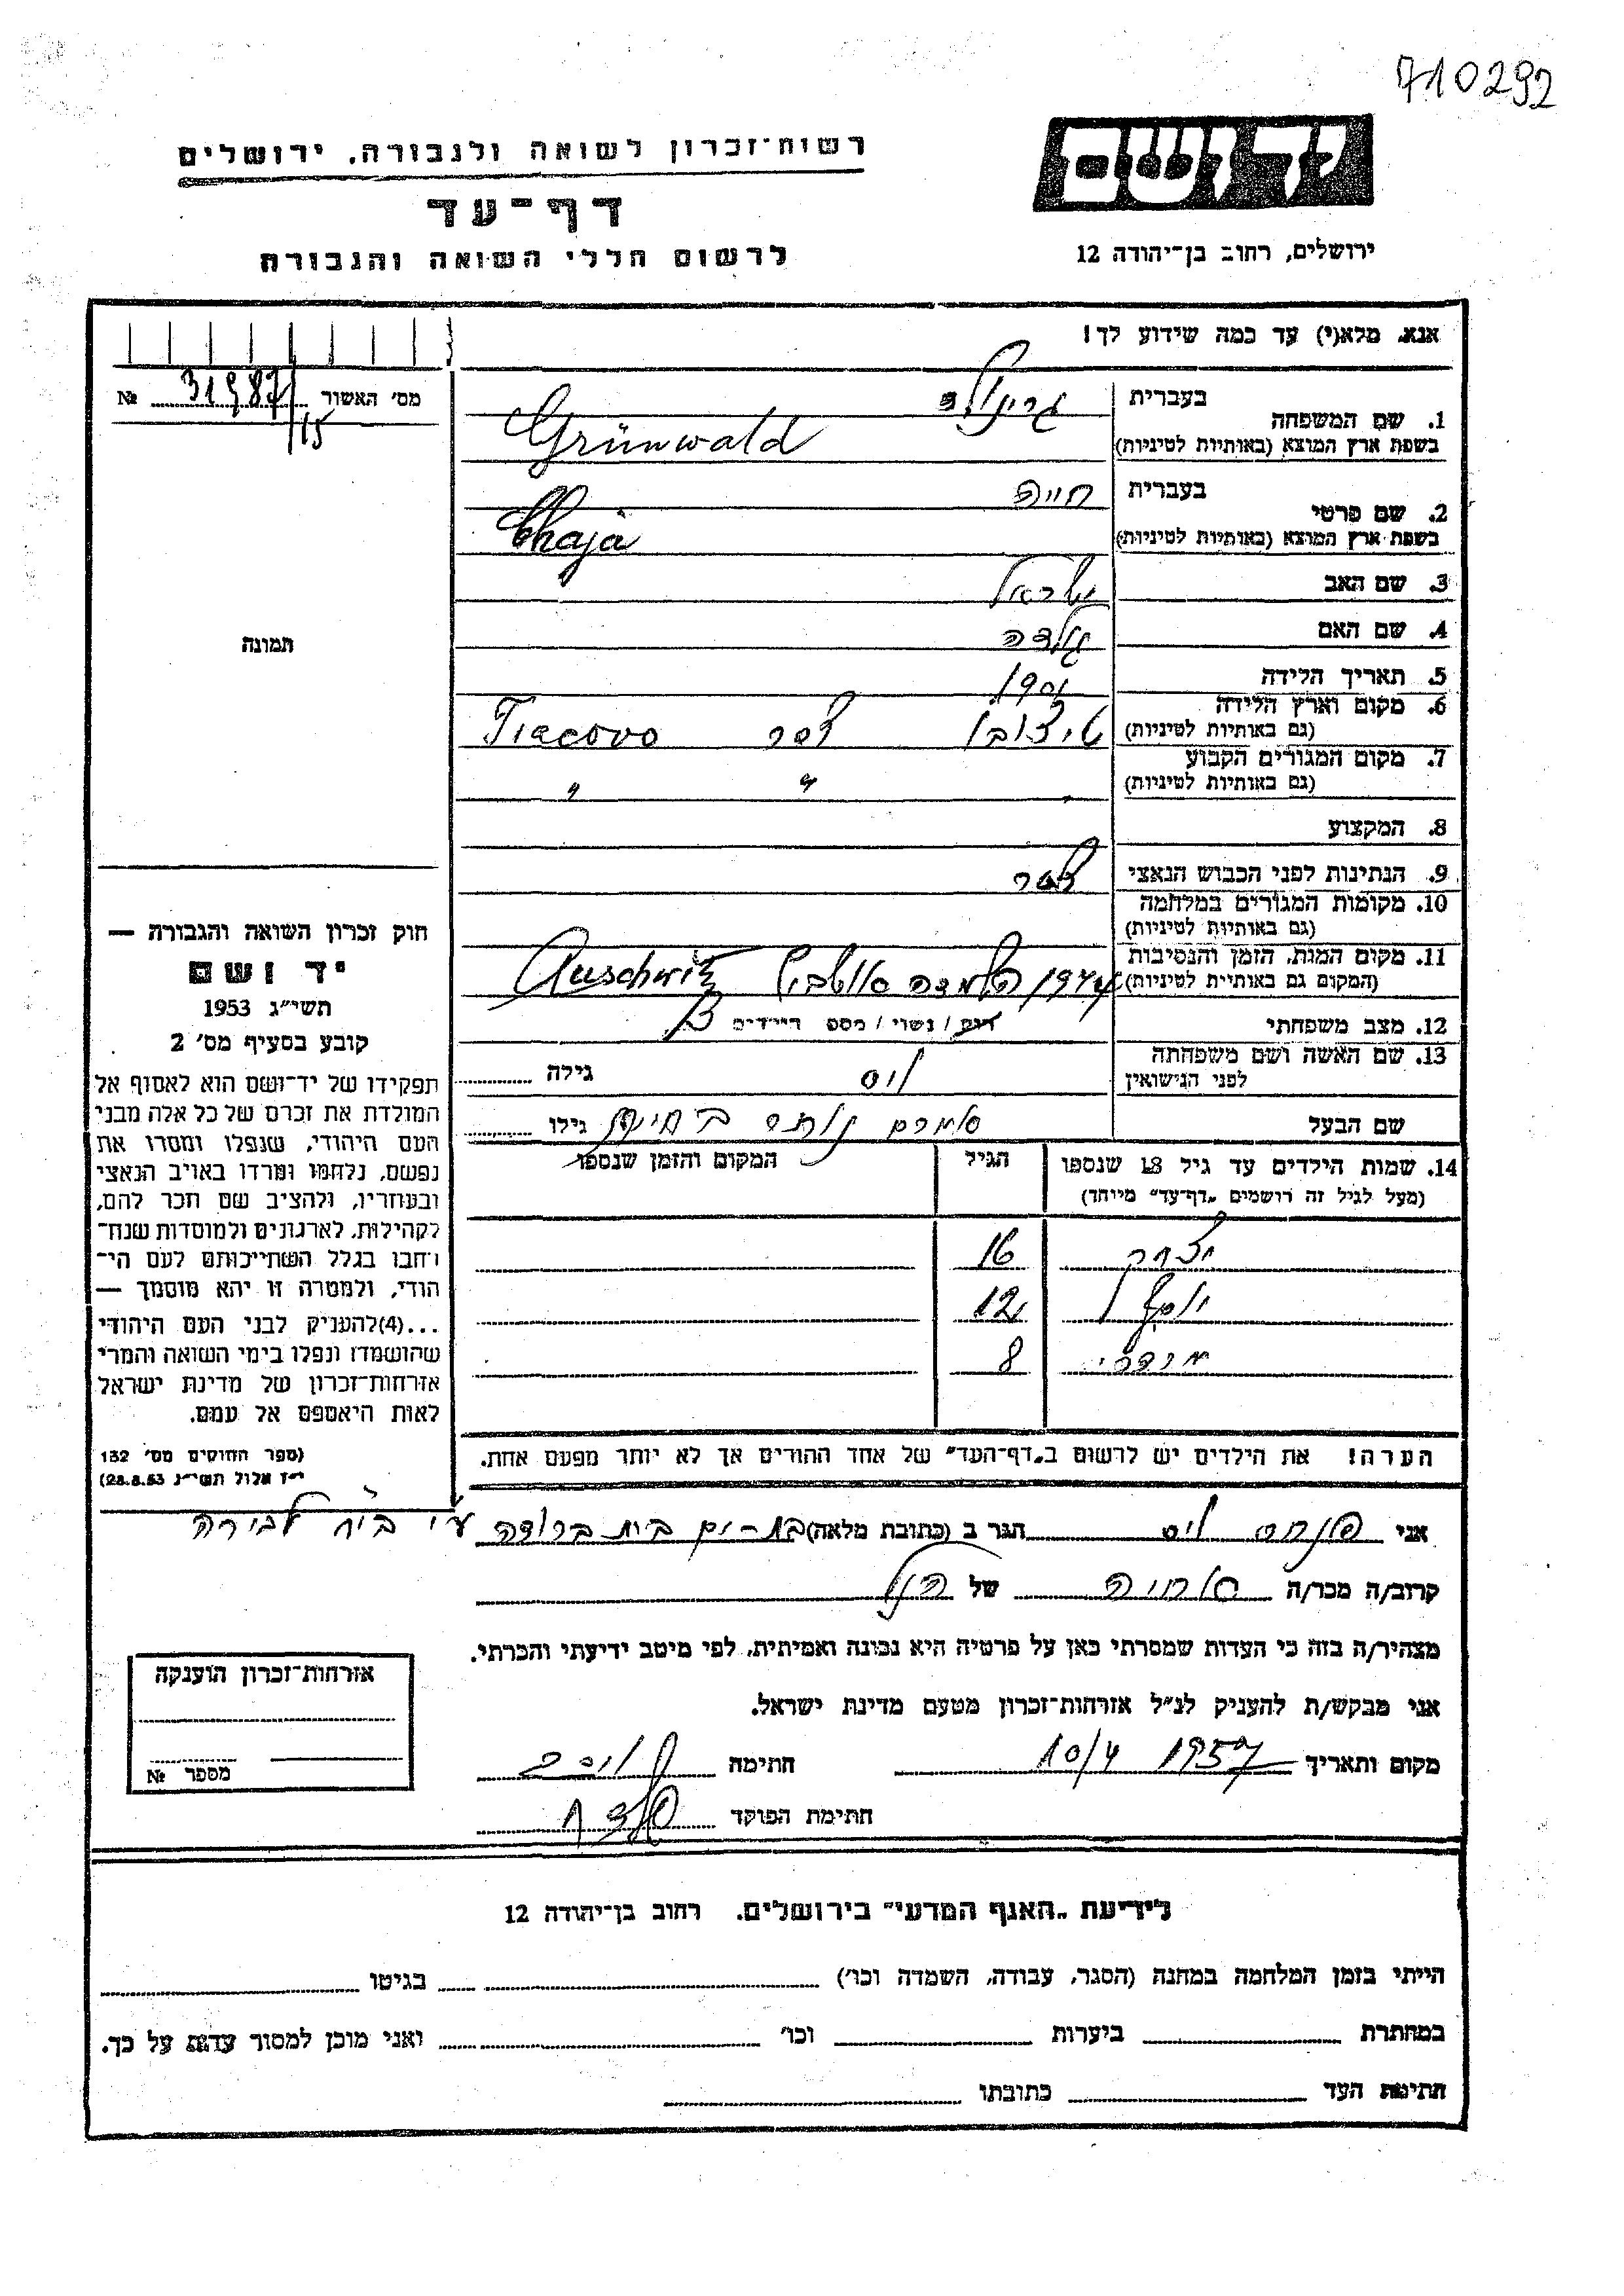 710292
יד ושם
רשות־זכרון לשואה ולגבורה, ירושלים
דף־עד
לרשום חללי השואה והגבורה
ירושלים, רחוב בן־יהודה 12
אנא, מלא(י) עד כמה שידוע לך!
מס' האשור 31987/15 №
1. שם המשפחה בעברית גרינולד
בשפת ארץ המוצא (באותיות לטיניות) Grünwald
2. שם פרטי בעברית חייה
בשפת ארץ המוצא (באותיות לטיניות) Chaja
3. שם האב ישראל
4. שם האם גולדה
5. תאריך הלידה 1901
6. מקום וארץ הלידה
(גם באותיות לטיניות) Tiacovo
7. מקום המגורים הקבוע
(גם באותיות לטיניות) " "
8. המקצוע
9. הנתינות לפני הכבוש הנאצי
10. מקומות המגורים במלחמה
(גם באותיות לטיניות)
11. מקום המות, הזמן והנסיבות
(המקום גם באותיות לטיניות) 1944 השמדה Auschwitz
12. מצב משפחתי רוק / נשוי / מספר הילדים 3
13. שם האשה ושם משפחתה
לפני הנישואין גילה
שם הבעל גילו
14. שמות הילדים עד גיל 18 שנספו הגיל המקום והזמן שנספו
(מעל לגיל זה רושמים „דף־עד" מיוחד)
יצחק 16
יוסף 12
8
הערה! את הילדים יש לרשום ב„דף־העד" של אחד ההורים אך לא יותר מפעם אחת.
תמונה
חוק זכרון השואה והגבורה —
יד ושם
תשי״ג 1953
קובע בסעיף מס' 2
תפקידו של יד־ושם הוא לאסוף אל
המולדת את זכרם של כל אלה מבני
העם היהודי, שנפלו ומסרו את
נפשם, נלחמו ומרדו באויב הנאצי
ובעוזריו, ולהציב שם וזכר להם,
לקהילות, לארגונים ולמוסדות שנח־
רבו בגלל השתייכותם לעם הי־
הודי, ולמטרה זו יהא מוסמך —
...(4)להעניק לבני העם היהודי
שהושמדו ונפלו בימי השואה והמרי
אזרחות־זכרון של מדינת ישראל
לאות היאספם אל עמם.
(ספר החוקים מס' 132
י״ז אלול תשי״ג 28.8.53)
אני פנחס הגר ב (כתובת מלאה) בת-ים
קרוב/ה מכר/ה של הנ״ל
מצהיר/ה בזה כי העדות שמסרתי כאן על פרטיה היא נכונה ואמיתית, לפי מיטב ידיעתי והכרתי.
אני מבקש/ת להעניק לנ״ל אזרחות־זכרון מטעם מדינת ישראל.
מקום ותאריך 10/4 1957 חתימה
חתימת הפוקד
אזרחות־זכרון הוענקה
מספר №
לידיעת „האגף המדעי" בירושלים, רחוב בן־יהודה 12
הייתי בזמן המלחמה במחנה (הסגר, עבודה, השמדה וכו') בגיטו
במחתרת ביערות וכו' ואני מוכן למסור עדות על כך.
חתימת העד כתובתו